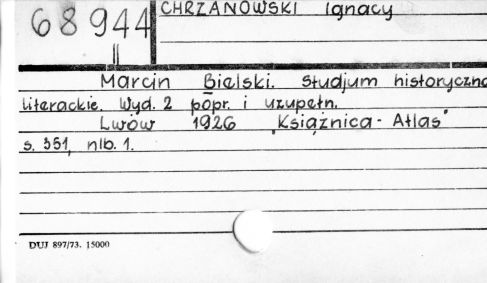 68944
II
CHRZANOWSKI Ignacy
Marcin Bielski. Studjum historyczno
literackie. Wyd. 2 popr. i uzupełn.
Lwów 1926 "Książnica-Atlas"
s. 351, nlb. 1.
DUJ 897/73. 15000